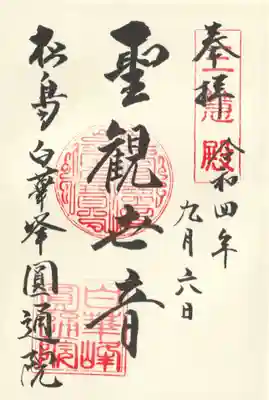 奉拝
令和四年
九月六日
聖観世音
松島白華峰圓通院
三慧殿
白華峰
圓通院